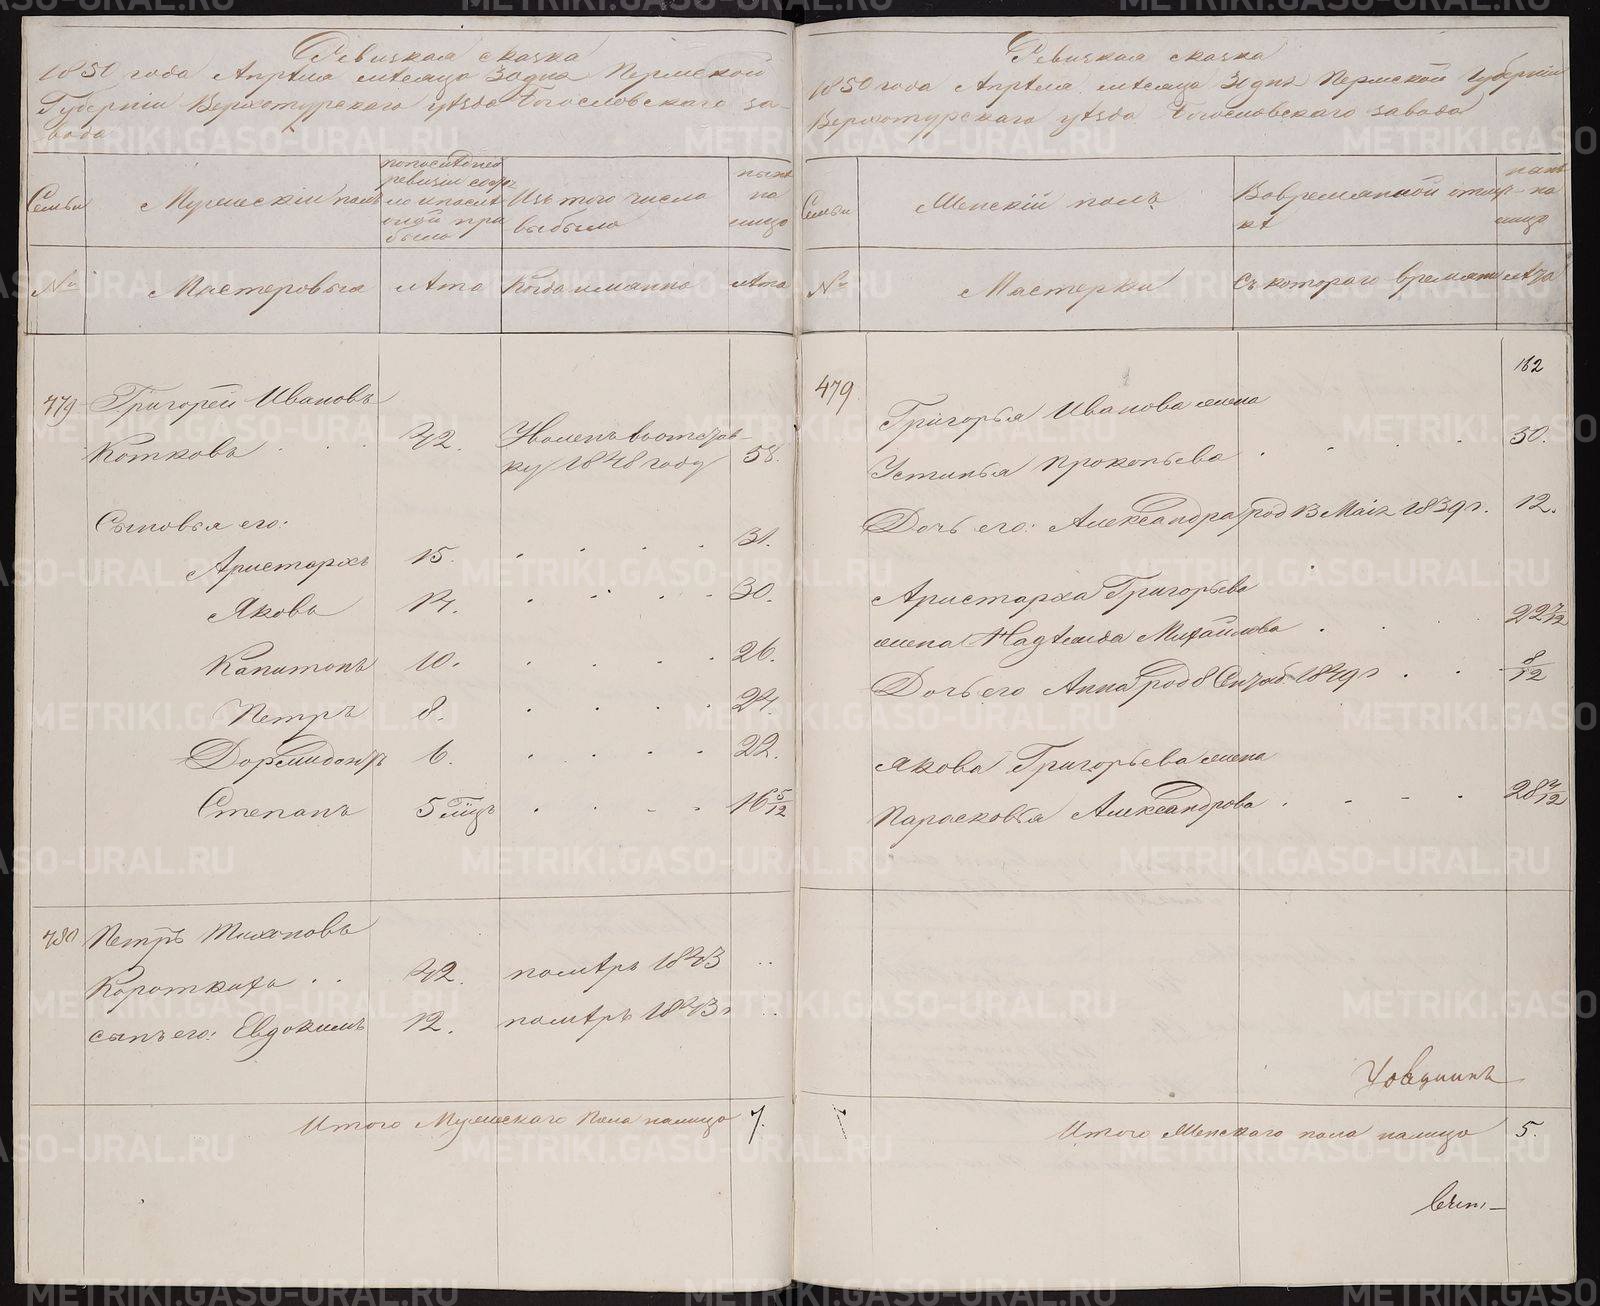 Ревизкая сказка
1850 года Апреля месяца 30 дня Пермской
Губернiи Верхотурскаго уѣзда Богословскаго за-
вода
Семьи
Мужескiй полъ
по последней
ревизiи состо
яло и после
оной при
было
Изъ того числа
выбыло
ныне
на
лицо
№
Мастеровыя
Лета
Когда имянно
Лета
479
Григорей Ивановъ
Котковъ . . . 42. Уволенъ въ отстав-
ку 1848 году 58.
Сыновья его:
Аристархъ 15. . . . . 31.
Яковъ 14. . . . . 30.
Капитонъ 10. . . . . 26.
Петръ 8. . . . . 24.
Дормидонтъ 6. . . . . 22.
Степанъ 5 мцъ . . . . 16 5/12
480 Петръ Тихоновъ
Короткихъ . . 42. помѣръ 1843 ..
сынъ его: Евдокимъ 12. помѣръ 1843 г ..
Итого Мужескаго Пола налицо 7.
Ревизкая сказка
1850 года Апреля месяца 30 дня Пермской Губернiи
Верхотурскаго уѣзда Богословскаго завода
Семьи
Женскiй полъ
Во временной отлуч-
кѣ
ныне
на
лицо
№
Мастерки
Съ котораго времяни
лѣта
162
479
Григорья Иванова жена
Устинья Прокопьева . . . . 50.
Дочь его: Александра род 13 Маiя 1839 г. 12.
Аристарха Григорьева
жена Надежда Михайлова . . . 22 7/12
Дочь его Анна род 8 Сентяб. 1849 г . . 8/12
Якова Григорьева жена
Парасковья Александрова . . . . 28 3/12
Итого Женскаго пола налицо 5.